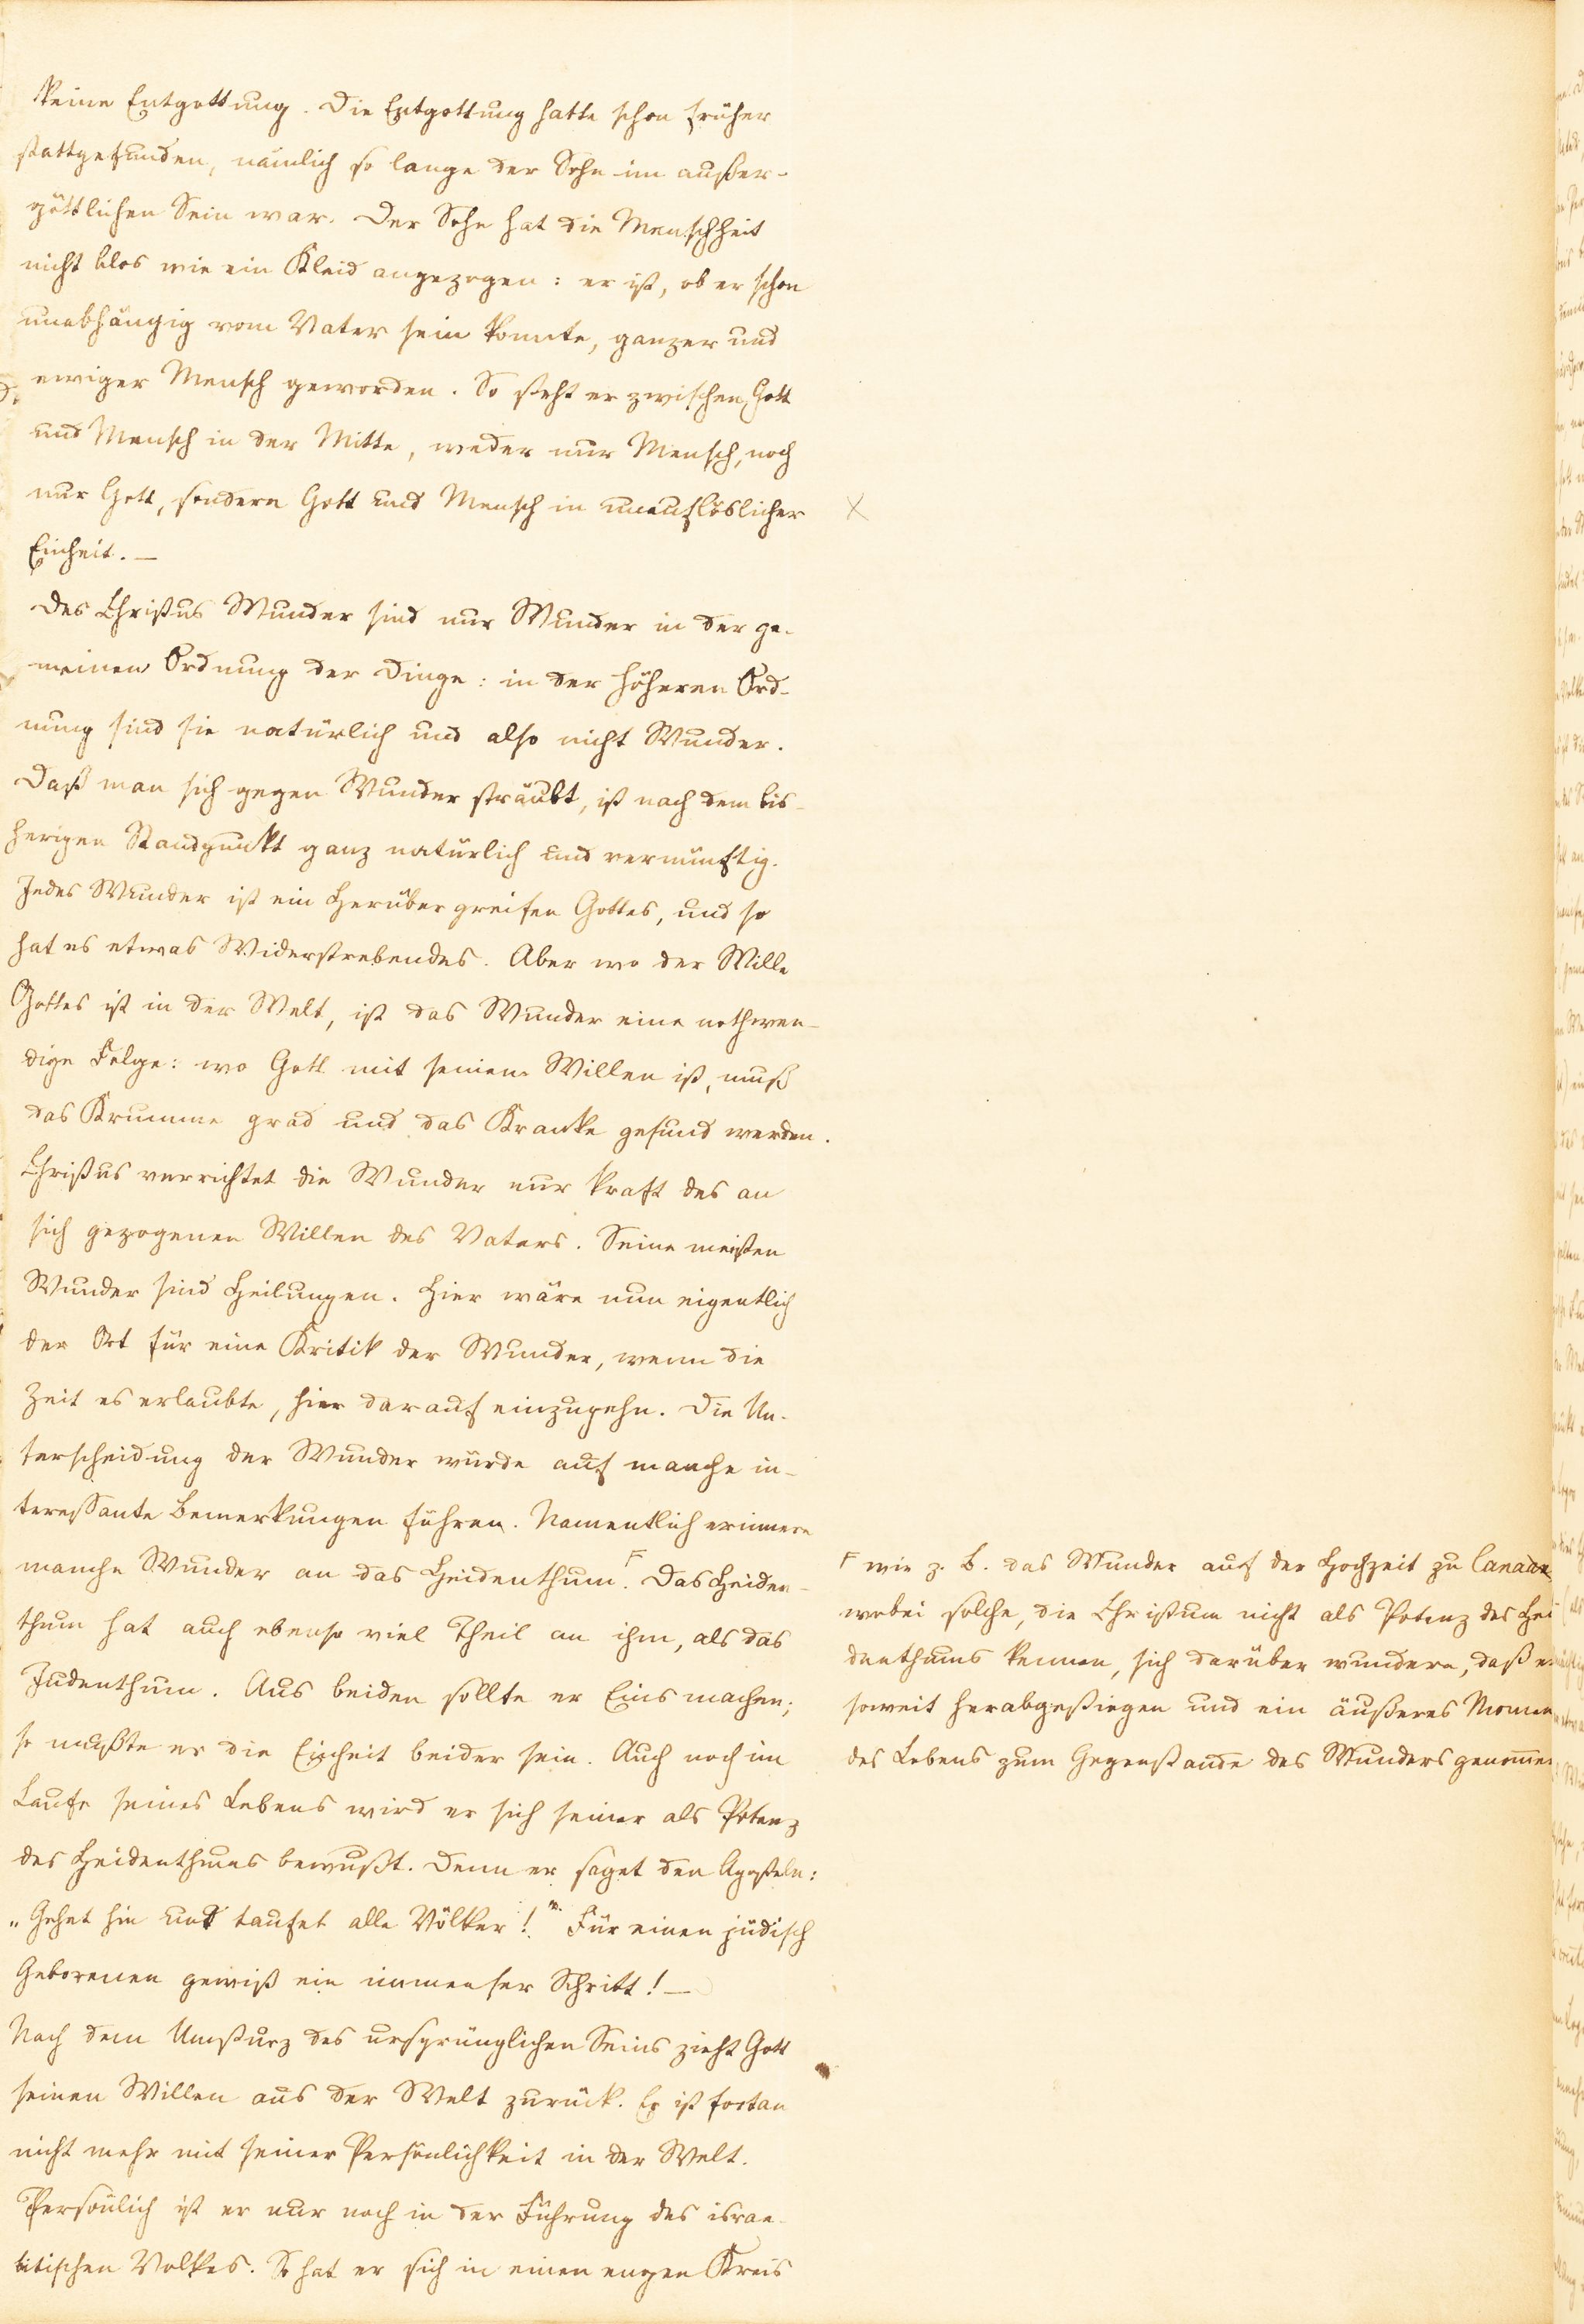 keine Entgottung. Die Entgottung hatte schon früher
stattgefunden, nämlich so lange der Sohn im außer-
göttlichen Sein war. Der Sohn hat die Menschheit
nicht blos wie ein Kleid angezogen: er ist, ob er schon
unabhängig vom Vater sein konnte, ganzer und
ewiger Mensch geworden. So steht er zwischen Gott
und Mensch in der Mitte, weder nur Mensch, noch
nur Gott, sondern Gott und Mensch in unauflöslicher
Einheit. —
Des Christus Wunder sind nur Wunder in der ge-
meinen Ordnung der Dinge: in der höheren Ord-
nung sind sie natürlich und also nicht Wunder.
Daß man sich gegen Wunder sträubt, ist nach dem bis-
herigen Standpunkt ganz natürlich und vernünftig.
Jedes Wunder ist ein Herübergreifen Gottes, und so
hat es etwas Widerstrebendes. Aber wo der Wille
Gottes ist in der Welt, ist das Wunder eine nothwen-
dige Folge: wo Gott mit seinem Willen ist, muß
das Krumme grad und das Kranke gesund werden.
Christus verrichtet die Wunder nur kraft des an
sich gezogenen Willen des Vaters. Seine meisten
Wunder sind Heilungen. Hier wäre nun eigentlich
der Ort für eine Kritik der Wunder, wenn die
Zeit es erlaubte, hier darauf einzugehn. Die Un-
terscheidung der Wunder würde auf manche in-
teressante Bemerkungen führen. Namentlich erinnern
manche Wunder an das Heidenthum. F Das Heiden-
thum hat auch ebenso viel Theil an ihm, als das
Judenthum. Aus beiden sollte er Eins machen;
so mußte er die Einheit beider sein. Auch noch im
Laufe seines Lebens wird er sich seiner als Potenz
des Heidenthums bewußt. Denn er saget den Aposteln:
„Gehet hin und taufet alle Völker!" Für einen jüdisch
Geborenen gewiß ein immenser Schritt! —
Nach dem Umsturz des ursprünglichen Seins zieht Gott
seinen Willen aus der Welt zurück. Er ist fortan
nicht mehr mit seiner Persönlichkeit in der Welt.
Persönlich ist er nur noch in der Führung des israe-
litischen Volkes. So hat er sich in einen engen Kreis
F wie z. B. das Wunder auf der Hochzeit zu Canaan
wobei solche, die Christum nicht als Potenz des Hei
denthums kennen, sich darüber wundern, daß er
soweit herabgestiegen und ein äußeres Momen
des Lebens zum Gegenstande des Wunders genommen